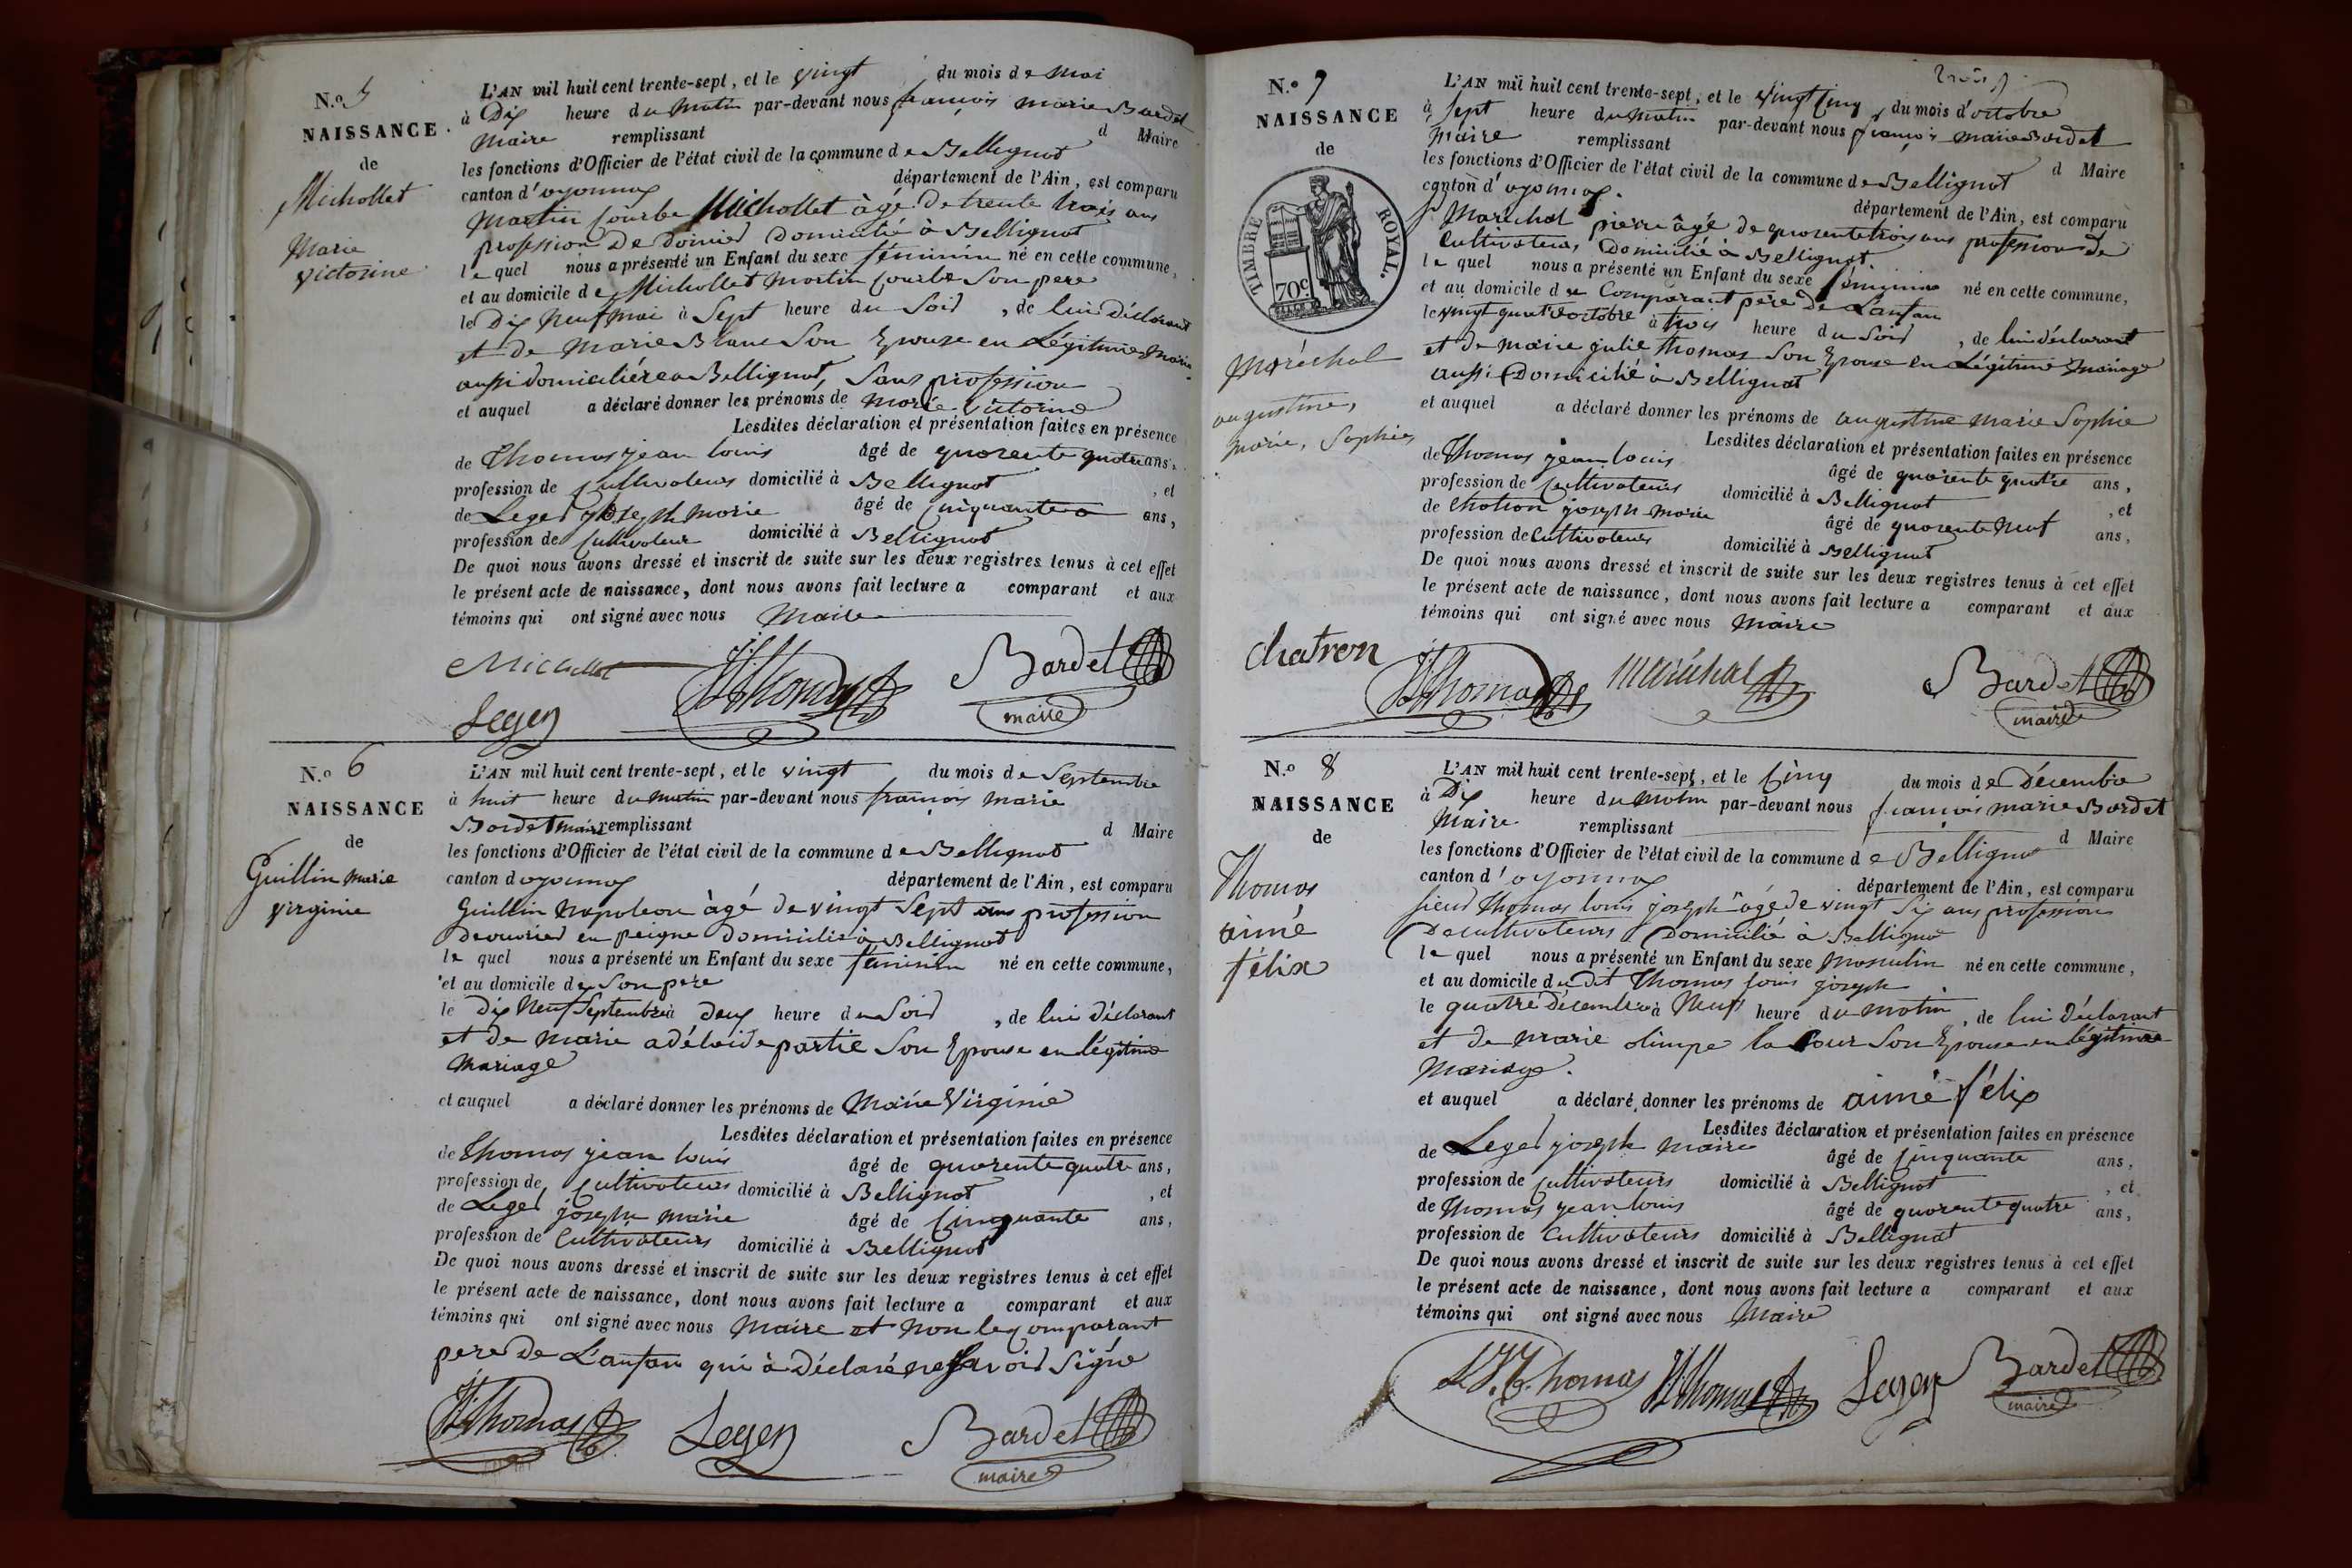 N.o 5
NAISSANCE
de
Michollet
Marie
victorine
L'AN mil huit cent trente-sept, et le vingt du mois de Mai
à Dix heure du Matin par-devant nous françois marie Bardet
Maire remplissant d Maire
les fonctions d'Officier de l'état civil de la commune de Bellignat
canton d'oyonnax département de l'Ain, est comparu
Martin Courbe Michollet àgé de trente trois ans
profession De Domicilié à Bellignat
le quel nous a présenté un Enfant du sexe féminin né en cette commune,
et au domicile de Michollet Martin Courbe Son pere
le Dix Neuf mai à Sept heure du Soir , de lui déclarant
et de Marie Blanc Son Epouse en Légitime Maria
aussi domiciliée a Bellignat, Sans profession
et auquel a déclaré donner les prénoms de Marie Victorine
Lesdites déclaration et présentation faites en présence
de Thomas jean louis âgé de quarente quatre ans,
profession de Cultivateurs domicilié à Bellignat , et
de Leger joseph Marie âgé de Cinquante ans,
profession de Cultivateur domicilié à Bellignat
De quoi nous avons dressé et inscrit de suite sur les deux registres tenus à cet effet
le présent acte de naissance, dont nous avons fait lecture a comparant et aux
témoins qui ont signé avec nous Maire
Michollet JLThomas Bardet
Leger maire
N.o 6
NAISSANCE
de
Guillin Marie
virginie
L'AN mil huit cent trente-sept, et le vingt du mois de Septembre
à huit heure du Matin par-devant nous françois Marie
Bardet Maire remplissant d Maire
les fonctions d'Officier de l'état civil de la commune de Bellignat
canton d oyonnax département de l'Ain, est comparu
Guillin Napoleon àgé de vingt Sept ans profession
d'ouvrier en peigne Domicilié à Bellignat
le quel nous a présenté un Enfant du sexe féminin né en cette commune,
et au domicile de Son pere
le dix Neuf Septembre à deux heure du Soir , de lui déclarant
et de Marie adélaide partie Son Epouse en légitime
Mariage
et auquel a déclaré donner les prénoms de Marie Virginie
Lesdites déclaration et présentation faites en présence
de Thomas jean louis âgé de quarente quatre ans,
profession de Cultivateurs domicilié à Bellignat , et
de Leger joseph Marie âgé de Cinquante ans,
profession de Cultivateurs domicilié à Bellignat
De quoi nous avons dressé et inscrit de suite sur les deux registres tenus à cet effet
le présent acte de naissance, dont nous avons fait lecture a comparant et aux
témoins qui ont signé avec nous Maire et Non le Comparant
pere de L'anfan qui à déclaré ne Savoir Signé
JLThomas Leger Bardet
maire
N.o 7
NAISSANCE
de
TIMBRE ROYAL.
70c
Maréchal
augustine,
Marie, Sophie
L'AN mil huit cent trente-sept, et le vingt Cinq du mois d'octobre
à Sept heure du Matin par-devant nous françois Marie Bardet
Maire remplissant d Maire
les fonctions d'Officier de l'état civil de la commune de Bellignat
canton d'oyonnax. département de l'Ain, est comparu
Maréchal pierre âgé de quarente trois ans profession de
Cultivateurs Domicilié à Bellignat
le quel nous a présenté un Enfant du sexe féminin né en cette commune,
et au domicile du Comparant pere de L'anfan
le vingt quatre octobre à trois heure du Soir , de lui déclarant
et de Marie julie Thomas Son Epouse en Légitime Mariage
aussi Domicilié à Bellignat
et auquel a déclaré donner les prénoms de augustine Marie Sophie
Lesdites déclaration et présentation faites en présence
de Thomas jean louis âgé de quarente quatre ans,
profession de Cultivateurs domicilié à Bellignat , et
de Chatron joseph Marie âgé de quarente Neuf ans,
profession de Cultivateurs domicilié à Bellignat
De quoi nous avons dressé et inscrit de suite sur les deux registres tenus à cet effet
le présent acte de naissance, dont nous avons fait lecture a comparant et aux
témoins qui ont signé avec nous Maire
chatron JLThomas Maréchal Bardet
maire
N.o 8
NAISSANCE
de
Thomas
aimé
félix
L'AN mil huit cent trente-sept, et le Cinq du mois de Décembre
à Dix heure du Matin par-devant nous françois Marie Bardet
Maire remplissant d Maire
les fonctions d'Officier de l'état civil de la commune de Bellignat
canton d'oyonnax département de l'Ain, est comparu
sieur Thomas louis joseph âgé de vingt Six ans profession
De cultivateurs Domicilié à Bellignat
le quel nous a présenté un Enfant du sexe Masculin né en cette commune,
et au domicile du dit Thomas louis joseph
le quatre décembre à Neuf heure du Matin , de lui déclarant
et de Marie olimpe la Cour Son Epouse en légitime
Mariage.
et auquel a déclaré donner les prénoms de aimé félix
Lesdites déclaration et présentation faites en présence
de Leger joseph Marie âgé de Cinquante ans,
profession de Cultivateurs domicilié à Bellignat , et
de Thomas jean louis âgé de quarente quatre ans,
profession de Cultivateurs domicilié à Bellignat
De quoi nous avons dressé et inscrit de suite sur les deux registres tenus à cet effet
le présent acte de naissance, dont nous avons fait lecture a comparant et aux
témoins qui ont signé avec nous Maire
L.J. Thomas JLThomas Leger Bardet
maire